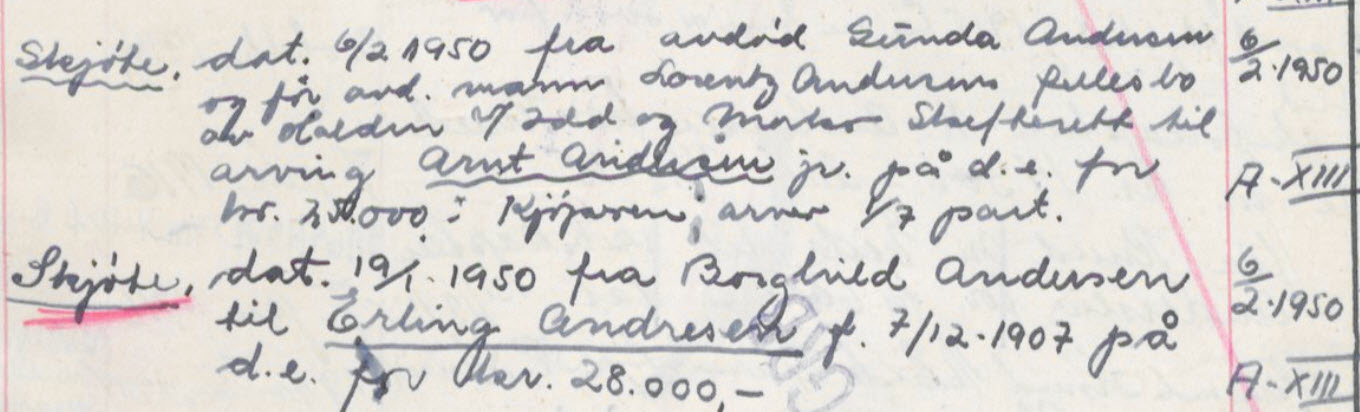 Skjöte, dat. 6/2 1950 fra avdöd Gunda Andersen
og för avd. mann Lorentz Andersens fellesbo
av Halden v/ Idd og Marker Skifterett til
arving Arnt Andersen jr. på d.e. for
kr. 25.000. Kjöperen arver 1/7 part.
6/2·1950
A-XIII
Skjöte, dat. 19/1·1950 fra Borghild Andersen
til Erling Andresen f. 7/12·1907 på
d.e. for kr. 28.000,-
6/2·1950
A-XIII